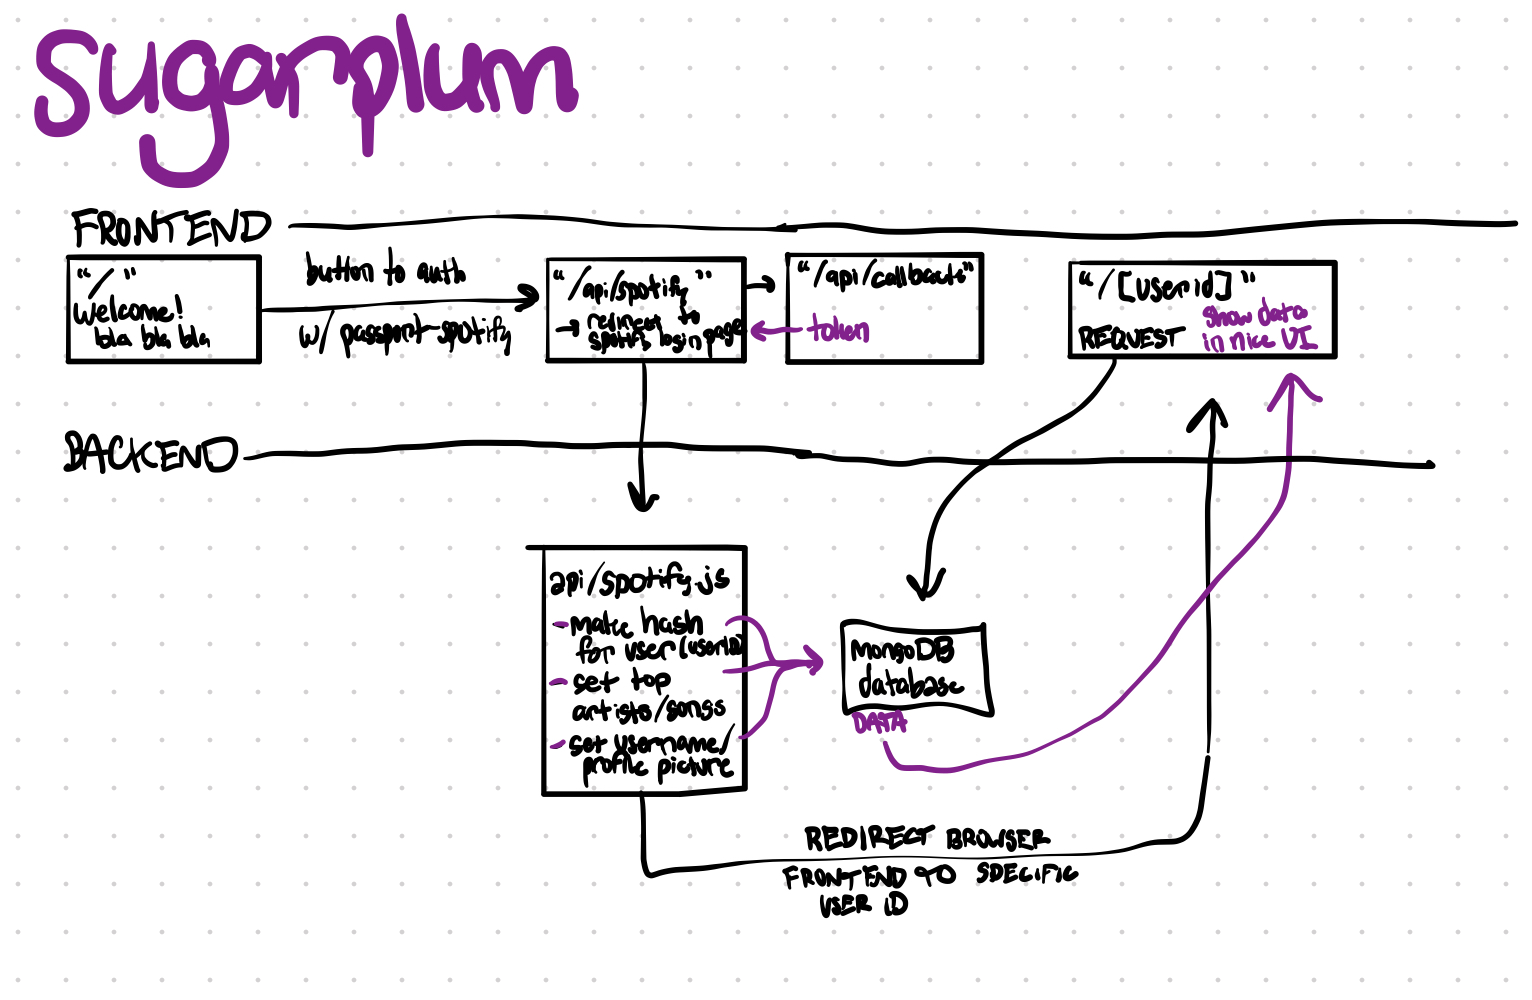 sugarplum
FRONTEND
"/"
Welcome!
bla bla bla
button to auth
w/ passport-spotify
"/api/spotify"
→ redirect to
spotify login page
"/api/callback"
token
"/[userid]"
REQUEST
show data
in nice UI
BACKEND
api/spotify.js
- make hash
for user (userID)
- set top
artists/songs
- set username/
profile picture
MongoDB
database
DATA
REDIRECT BROWSER
FRONTEND TO SPECIFIC
USER ID